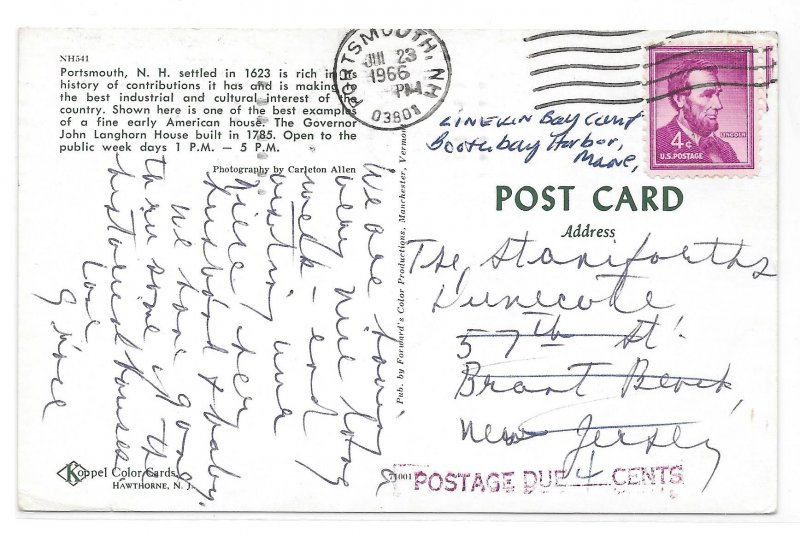 NH541
Portsmouth, N. H. settled in 1623 is rich in its
history of contributions it has and is making to
the best industrial and cultural interest of the
country. Shown here is one of the best examples
of a fine early American house. The Governor
John Langhorn House built in 1785. Open to the
public week days 1 P.M. — 5 P.M.
Photography by Carleton Allen
We are having
very nice long
week-end
visiting our
niece, her
husband & baby.
We have gone
thru some of the
historical houses.
Love
Grace
Koppel Color Cards
HAWTHORNE, N. J.
Pub. by Forward's Color Productions, Manchester, Vermont
71001
PORTSMOUTH, NH
JUL 23
1966
PM
03801
4¢
LINCOLN
U.S. POSTAGE
LINEKIN Bay Camp
Boothbay Harbor,
Maine,
POST CARD
Address
The Staniforths
Dunecote
57th St.
Brant Beach,
New Jersey
POSTAGE DUE 4 CENTS